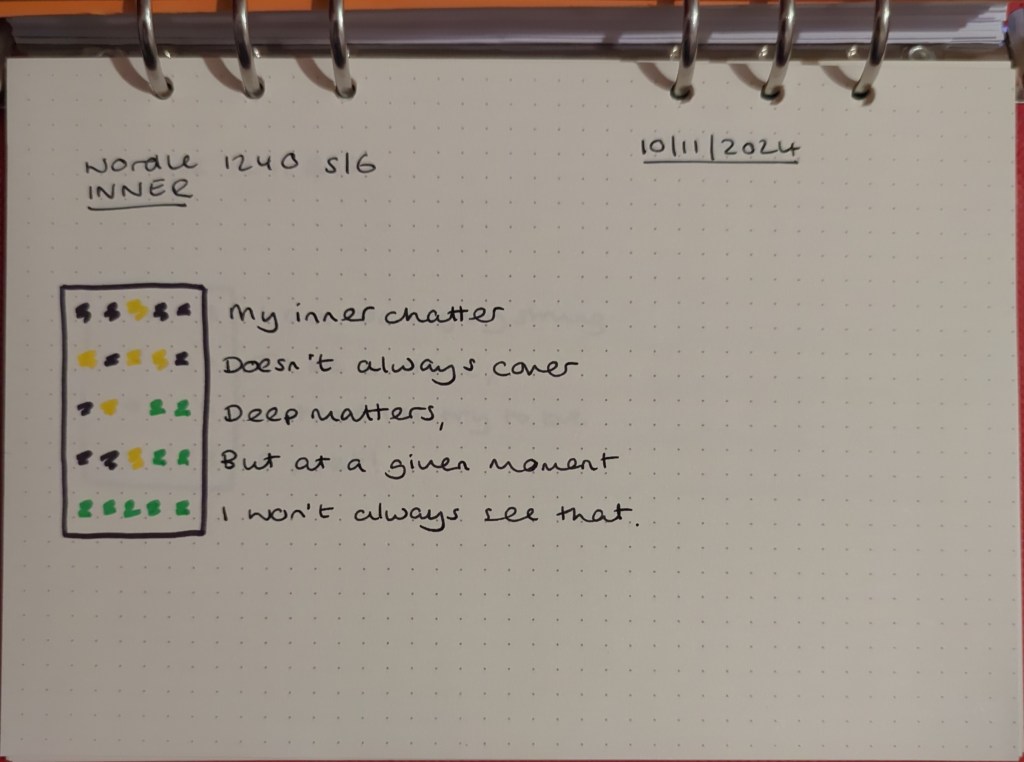 Wordle 1240 5/6
10/11/2024
INNER
My inner chatter
Doesn't always cover
Deep matters,
But at a given moment
I won't always see that.